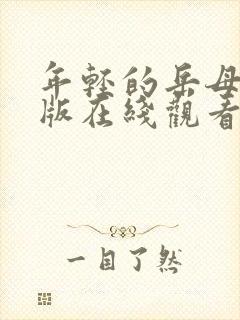 年轻的岳母
版在线觀看
一目了然